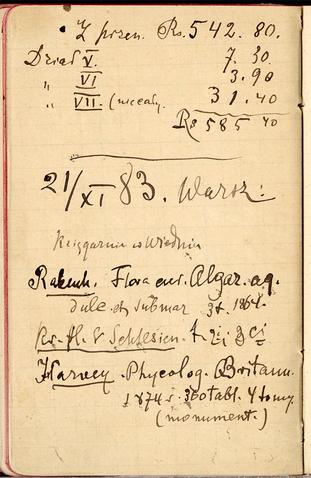 Z przen. Rs. 542. 80.
Dział V. 7. 30
„ VI 3. 90
„ VII. 31. 40
Rs 585 40
21/XI 83. Warsz:
Księgarnia w Wiedniu
Rabenh. Flora eur. Algar. aq.
dulc et submar 3t. 1864.
Kr. fl. v Schlesien. t.
Harvey. Phycolog. Britann.
1874 r. 360 tabl. 4 tomy
(monument.)